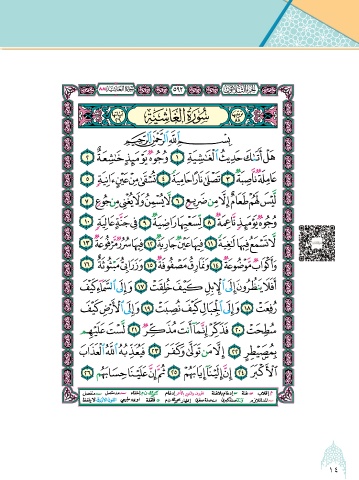 ٥٩٢
سُورَةُ الْغَاشِيَةِ
بِسْمِ اللَّهِ الرَّحْمَٰنِ الرَّحِيمِ
هَلْ أَتَىٰكَ حَدِيثُ الْغَٰشِيَةِ ١ وُجُوهٌ يَوْمَئِذٍ خَٰشِعَةٌ ٢
عَامِلَةٌ نَّاصِبَةٌ ٣ تَصْلَىٰ نَارًا حَامِيَةً ٤ تُسْقَىٰ مِنْ عَيْنٍ ءَانِيَةٍ ٥
لَّيْسَ لَهُمْ طَعَامٌ إِلَّا مِن ضَرِيعٍ ٦ لَّا يُسْمِنُ وَلَا يُغْنِي مِن جُوعٍ ٧
وُجُوهٌ يَوْمَئِذٍ نَّاعِمَةٌ ٨ لِّسَعْيِهَا رَاضِيَةٌ ٩ فِي جَنَّةٍ عَالِيَةٍ ١٠
لَّا تَسْمَعُ فِيهَا لَٰغِيَةً ١١ فِيهَا عَيْنٌ جَارِيَةٌ ١٢ فِيهَا سُرُرٌ مَّرْفُوعَةٌ ١٣
وَأَكْوَابٌ مَّوْضُوعَةٌ ١٤ وَنَمَارِقُ مَصْفُوفَةٌ ١٥ وَزَرَابِيُّ مَبْثُوثَةٌ ١٦
أَفَلَا يَنظُرُونَ إِلَى الْإِبِلِ كَيْفَ خُلِقَتْ ١٧ وَإِلَى السَّمَاءِ كَيْفَ
رُفِعَتْ ١٨ وَإِلَى الْجِبَالِ كَيْفَ نُصِبَتْ ١٩ وَإِلَى الْأَرْضِ كَيْفَ
سُطِحَتْ ٢٠ فَذَكِّرْ إِنَّمَا أَنتَ مُذَكِّرٌ ٢١ لَّسْتَ عَلَيْهِم
بِمُصَيْطِرٍ ٢٢ إِلَّا مَن تَوَلَّىٰ وَكَفَرَ ٢٣ فَيُعَذِّبُهُ اللَّهُ الْعَذَابَ
الْأَكْبَرَ ٢٤ إِنَّ إِلَيْنَا إِيَابَهُمْ ٢٥ ثُمَّ إِنَّ عَلَيْنَا حِسَابَهُم ٢٦
١٤